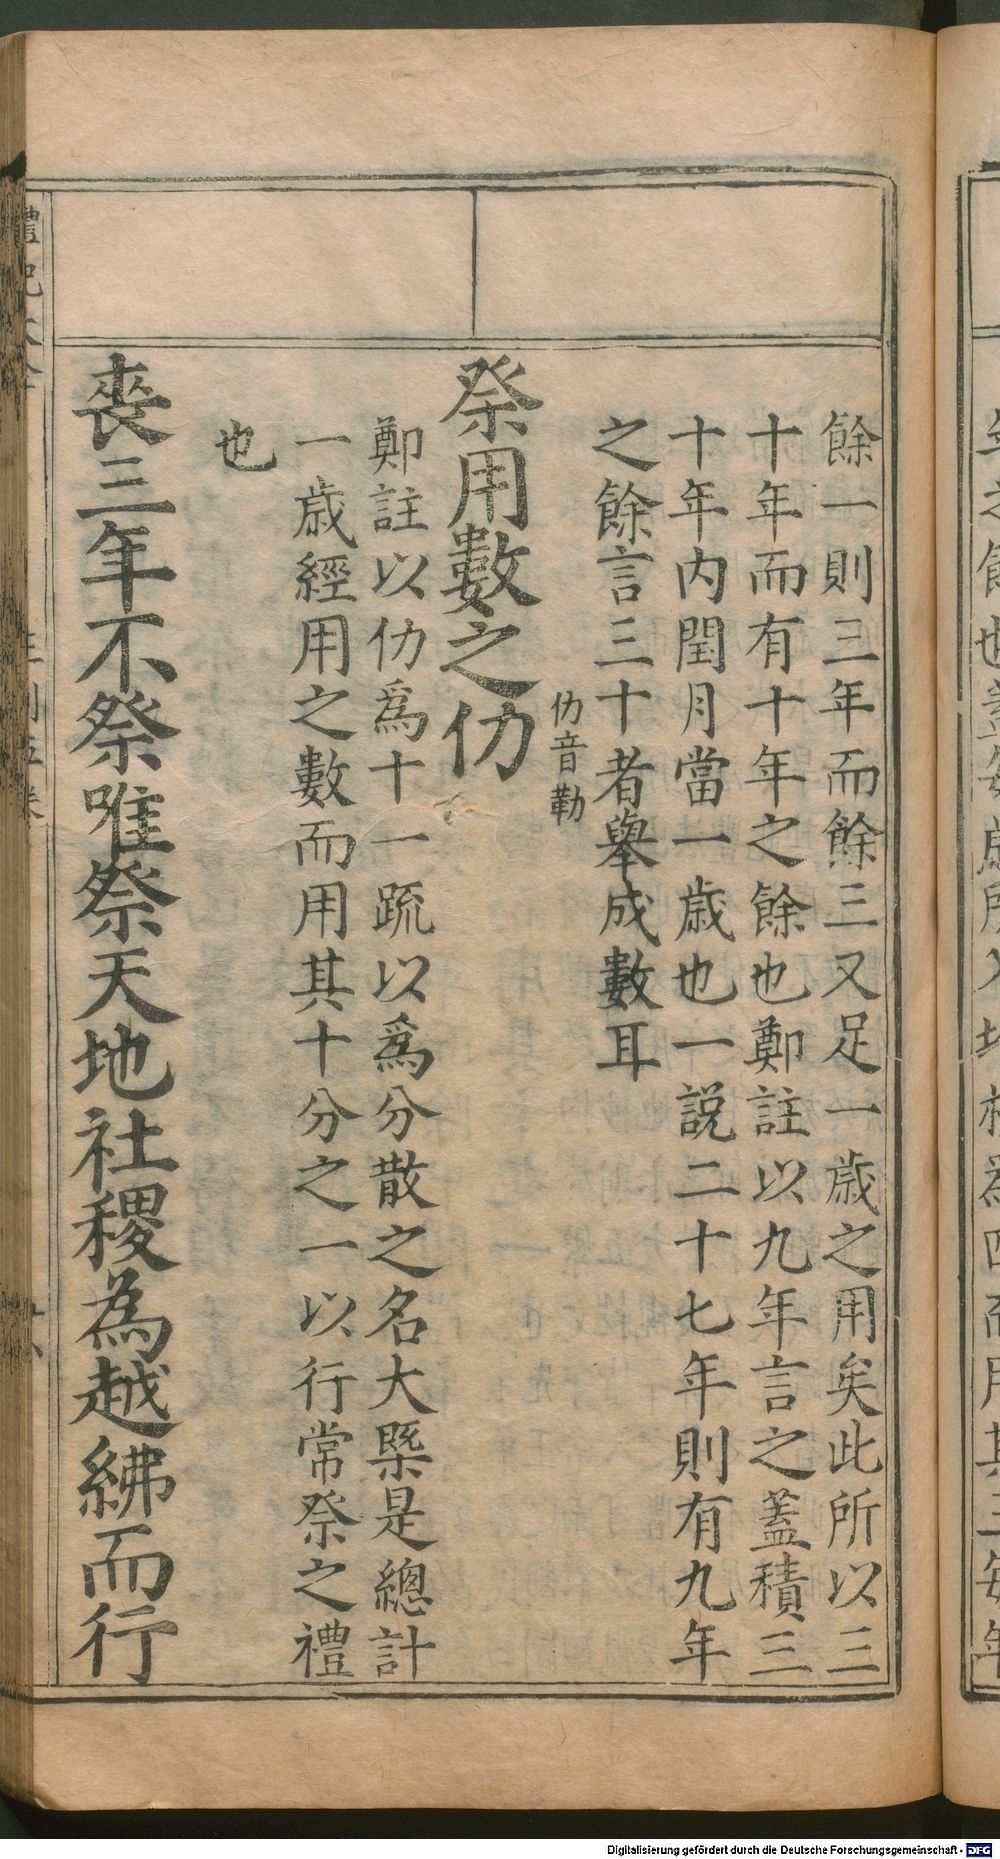 餘一則三年而餘三又足一歲之用矣此所以三
十年而有十年之餘也鄭註以九年言之蓋積三
十年內閏月當一歲也一説二十七年則有九年
之餘言三十者舉成數耳
仂音勒
祭用數之仂
鄭註以仂爲十一疏以爲分散之名大槩是總計
一歲經用之數而用其十分之一以行常祭之禮
也
喪三年不祭唯祭天地社稷為越紼而行
Digitalisierung gefördert durch die Deutsche Forschungsgemeinschaft - DFG